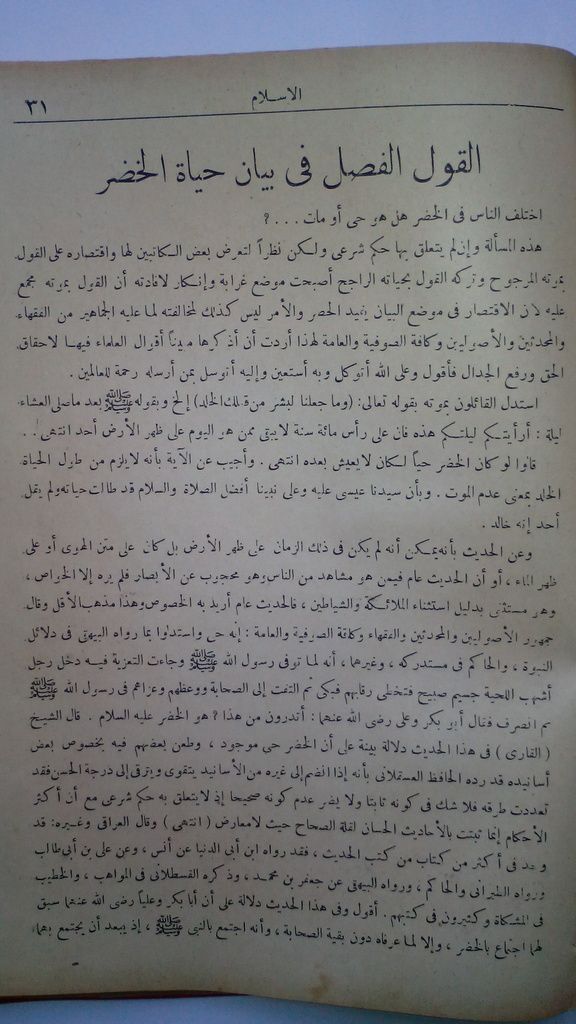 ٣١
الاسلام
القول الفصل فى بيان حياة الخضر
اختلف الناس فى الخضر هل هو حى أو مات . . . ؟
هذه المسألة وإن لم يتعلق بها حكم شرعى ولكن نظراً لتعرض بعض الكاتبين لها واقتصاره على القول
بموته المرجوح وتركه القول بحياته الراجح أصبحت موضع غرابة وإنكار لافادته أن القول بموته مجمع
عليه لان الاقتصار فى موضع البيان يفيد الحصر والأمر ليس كذلك لمخالفته لما عليه الجماهير من الفقهاء
والمحدثين والأصوليين وكافة الصوفية والعامة لهذا أردت أن أذكرها مبيناً أقوال العلماء فيها لاحقاق
الحق ورفع الجدال فأقول وعلى الله أتوكل وبه أستعين وإليه أتوسل بمن أرسله رحمة للعالمين .
استدل القائلون بموته بقوله تعالى: (وما جعلنا لبشر من قبلك الخلد) إلخ وبقوله ﷺ بعد ما صلى العشاء
ليلة : أرأيتكم ليلتكم هذه فان على رأس مائة سنة لا يبقى ممن هو اليوم على ظهر الأرض أحد انتهى . .
قالوا لو كان الخضر حياً لكان لا يعيش بعده انتهى . وأجيب عن الآية بأنه لا يلزم من طول الحياة
الخلد بمعنى عدم الموت . وبأن سيدنا عيسى عليه وعلى نبينا أفضل الصلاة والسلام قد طالت حياته ولم يقل
أحد إنه خالد .
وعن الحديث بأنه يمكن أنه لم يكن فى ذلك الزمان على ظهر الأرض بل كان على متن الهوى أو على
ظهر الماء ، أو أن الحديث عام فيمن هو مشاهد من الناس وهو محجوب عن الأبصار فلم يره إلا الخواص ،
وهو مستثنى بدليل استثناء الملائكة والشياطين ، فالحديث عام أريد به الخصوص وهذا مذهب الأقل وقال
جمهور الأصوليين والمحدثين والفقهاء وكافة الصوفية والعامة : إنه حى واستدلوا بما رواه البيهقى فى دلائل
النبوة ، والحاكم فى مستدركه ، وغيرهما ، أنه لما توفى رسول الله ﷺ وجاءت التعزية فيه دخل رجل
أشهب اللحية جسيم صبيح فتخطى رقابهم فبكى ثم التفت إلى الصحابة ووعظهم وعزاهم فى رسول الله ﷺ
ثم انصرف فقال أبو بكر وعلى رضى الله عنهما : أتدرون من هذا ؟ هو الخضر عليه السلام . قال الشيخ
( القارى ) فى هذا الحديث دلالة بينة على أن الخضر حى موجود ، وطعن بعضهم فيه بخصوص بعض
أسانيده قد رده الحافظ العسقلانى بأنه إذا انضم إلى غيره من الأسانيد يتقوى ويترقى إلى درجة الحسن فقد
تعددت طرقه فلا شك فى كونه ثابتا ولا يضر عدم كونه صحيحا إذ لا يتعلق به حكم شرعى مع أن أكثر
الأحكام إنما تثبتت بالأحاديث الحسان لقلة الصحاح حيث لا معارض ( انتهى ) وقال العراقى وغيره: قد
وجد فى أكثر من كتاب من كتب الحديث ، فقد رواه ابن أبى الدنيا عن أنس ، وعن على بن أبى طالب
ورواه الطبرانى والحاكم ، ورواه البيهقى عن جعفر بن محمد ، وذكره القسطلانى فى المواهب ، والخطيب
فى المشكاة وكثيرون فى كتبهم . أقول وفى هذا الحديث دلالة على أن أبا بكر وعلياً رضى الله عنهما سبق
لهما اجتماع بالخضر ، وإلا لما عرفاه دون بقية الصحابة ، وأنه اجتمع بالنبى ﷺ ، إذ يبعد أن يجتمع بهما